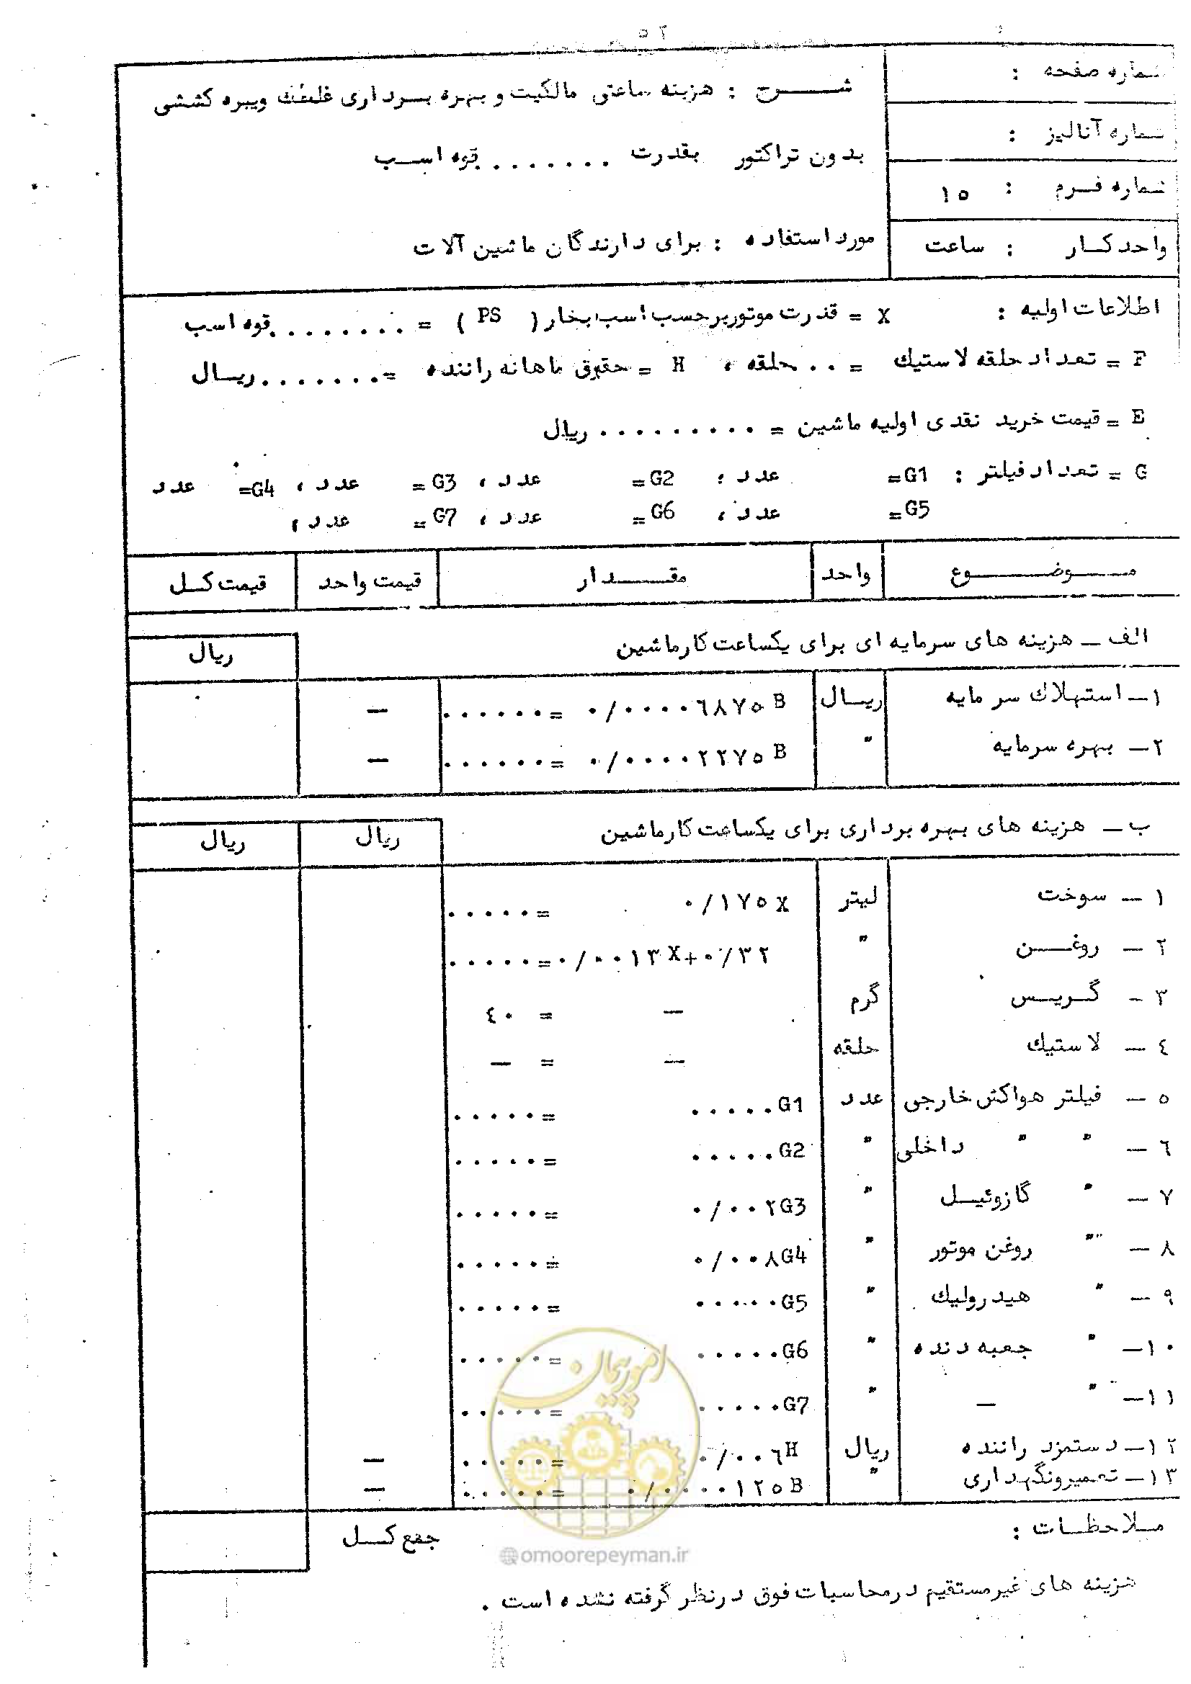 ٥٢
شماره صفحه :
شماره آنالیز :
شماره فرم : ١٥
واحد کار : ساعت
شرح : هزینه ساعتی مالکیت و بهره برداری غلطک ویبره کششی
بدون تراکتور بقدرت ....... قوه اسب
مورد استفاده : برای دارندگان ماشین آلات
اطلاعات اولیه : X = قدرت موتور برحسب اسب بخار ( PS ) = ........ قوه اسب
F = تعداد حلقه لاستیک = .. حلقه ، H = حقوق ماهانه راننده = ....... ریال
E = قیمت خرید نقدی اولیه ماشین = ......... ریال
G = تعداد فیلتر : G1= عدد ، G2= عدد ، G3= عدد ، G4= عدد
G5= عدد ، G6= عدد ، G7= عدد ،
موضوع واحد مقدار قیمت واحد قیمت کل
الف ــ هزینه های سرمایه ای برای یکساعت کار ماشین ریال
١ــ استهلاک سرمایه ریال ٠/٠٠٠٠٦٨٧٥B =...... ــ
٢ــ بهره سرمایه " ٠/٠٠٠٠٢٢٧٥B =...... ــ
ب ــ هزینه های بهره برداری برای یکساعت کار ماشین ریال ریال
١ ــ سوخت لیتر ٠/١٧٥X =.....
٢ ــ روغن " ٠/٠٠١٣X+٠/٣٢ =.....
٣ ــ گریس گرم ــ = ٤٠
٤ ــ لاستیک حلقه ــ = ــ
٥ ــ فیلتر هواکش خارجی عدد .....G1 =.....
٦ ــ " " داخلی " .....G2 =.....
٧ ــ " گازوئیل " ٠/٠٠٢G3 =.....
٨ ــ " روغن موتور " ٠/٠٠٨G4 =.....
٩ ــ " هیدرولیک " .....G5 =.....
١٠ــ " جعبه دنده " .....G6 =.....
١١ــ " ــ " .....G7 =.....
١٢ــ دستمزد راننده ریال ٠/٠٠٦H =..... ــ
١٣ــ تعمیر و نگهداری " ٠/٠٠٠٠١٢٥B =..... ــ
ملاحظات : جمع کل
هزینه های غیرمستقیم در محاسبات فوق در نظر گرفته نشده است .
امور پیمان
@omoorepeyman.ir